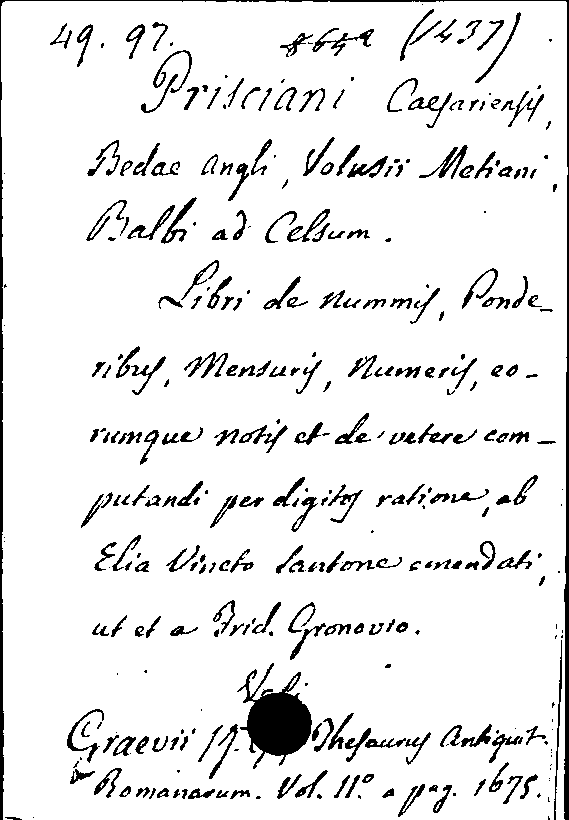 49. 97. 864a (1437)
Prisciani Caesariensis,
Bedae Angli, Volusii Metiani,
Balbi ad Celsum.
Libri de nummis, Ponde-
ribus, Mensuris, Numeris, eo-
rumque notis et de vetere com-
putandi per digitos ratione, ab
Elia Vineto Santone emendati,
ut et a Frid. Gronovio.
Graevii Thesaurus Antiquit.
Romanarum. Vol. 11º a pag. 1675.